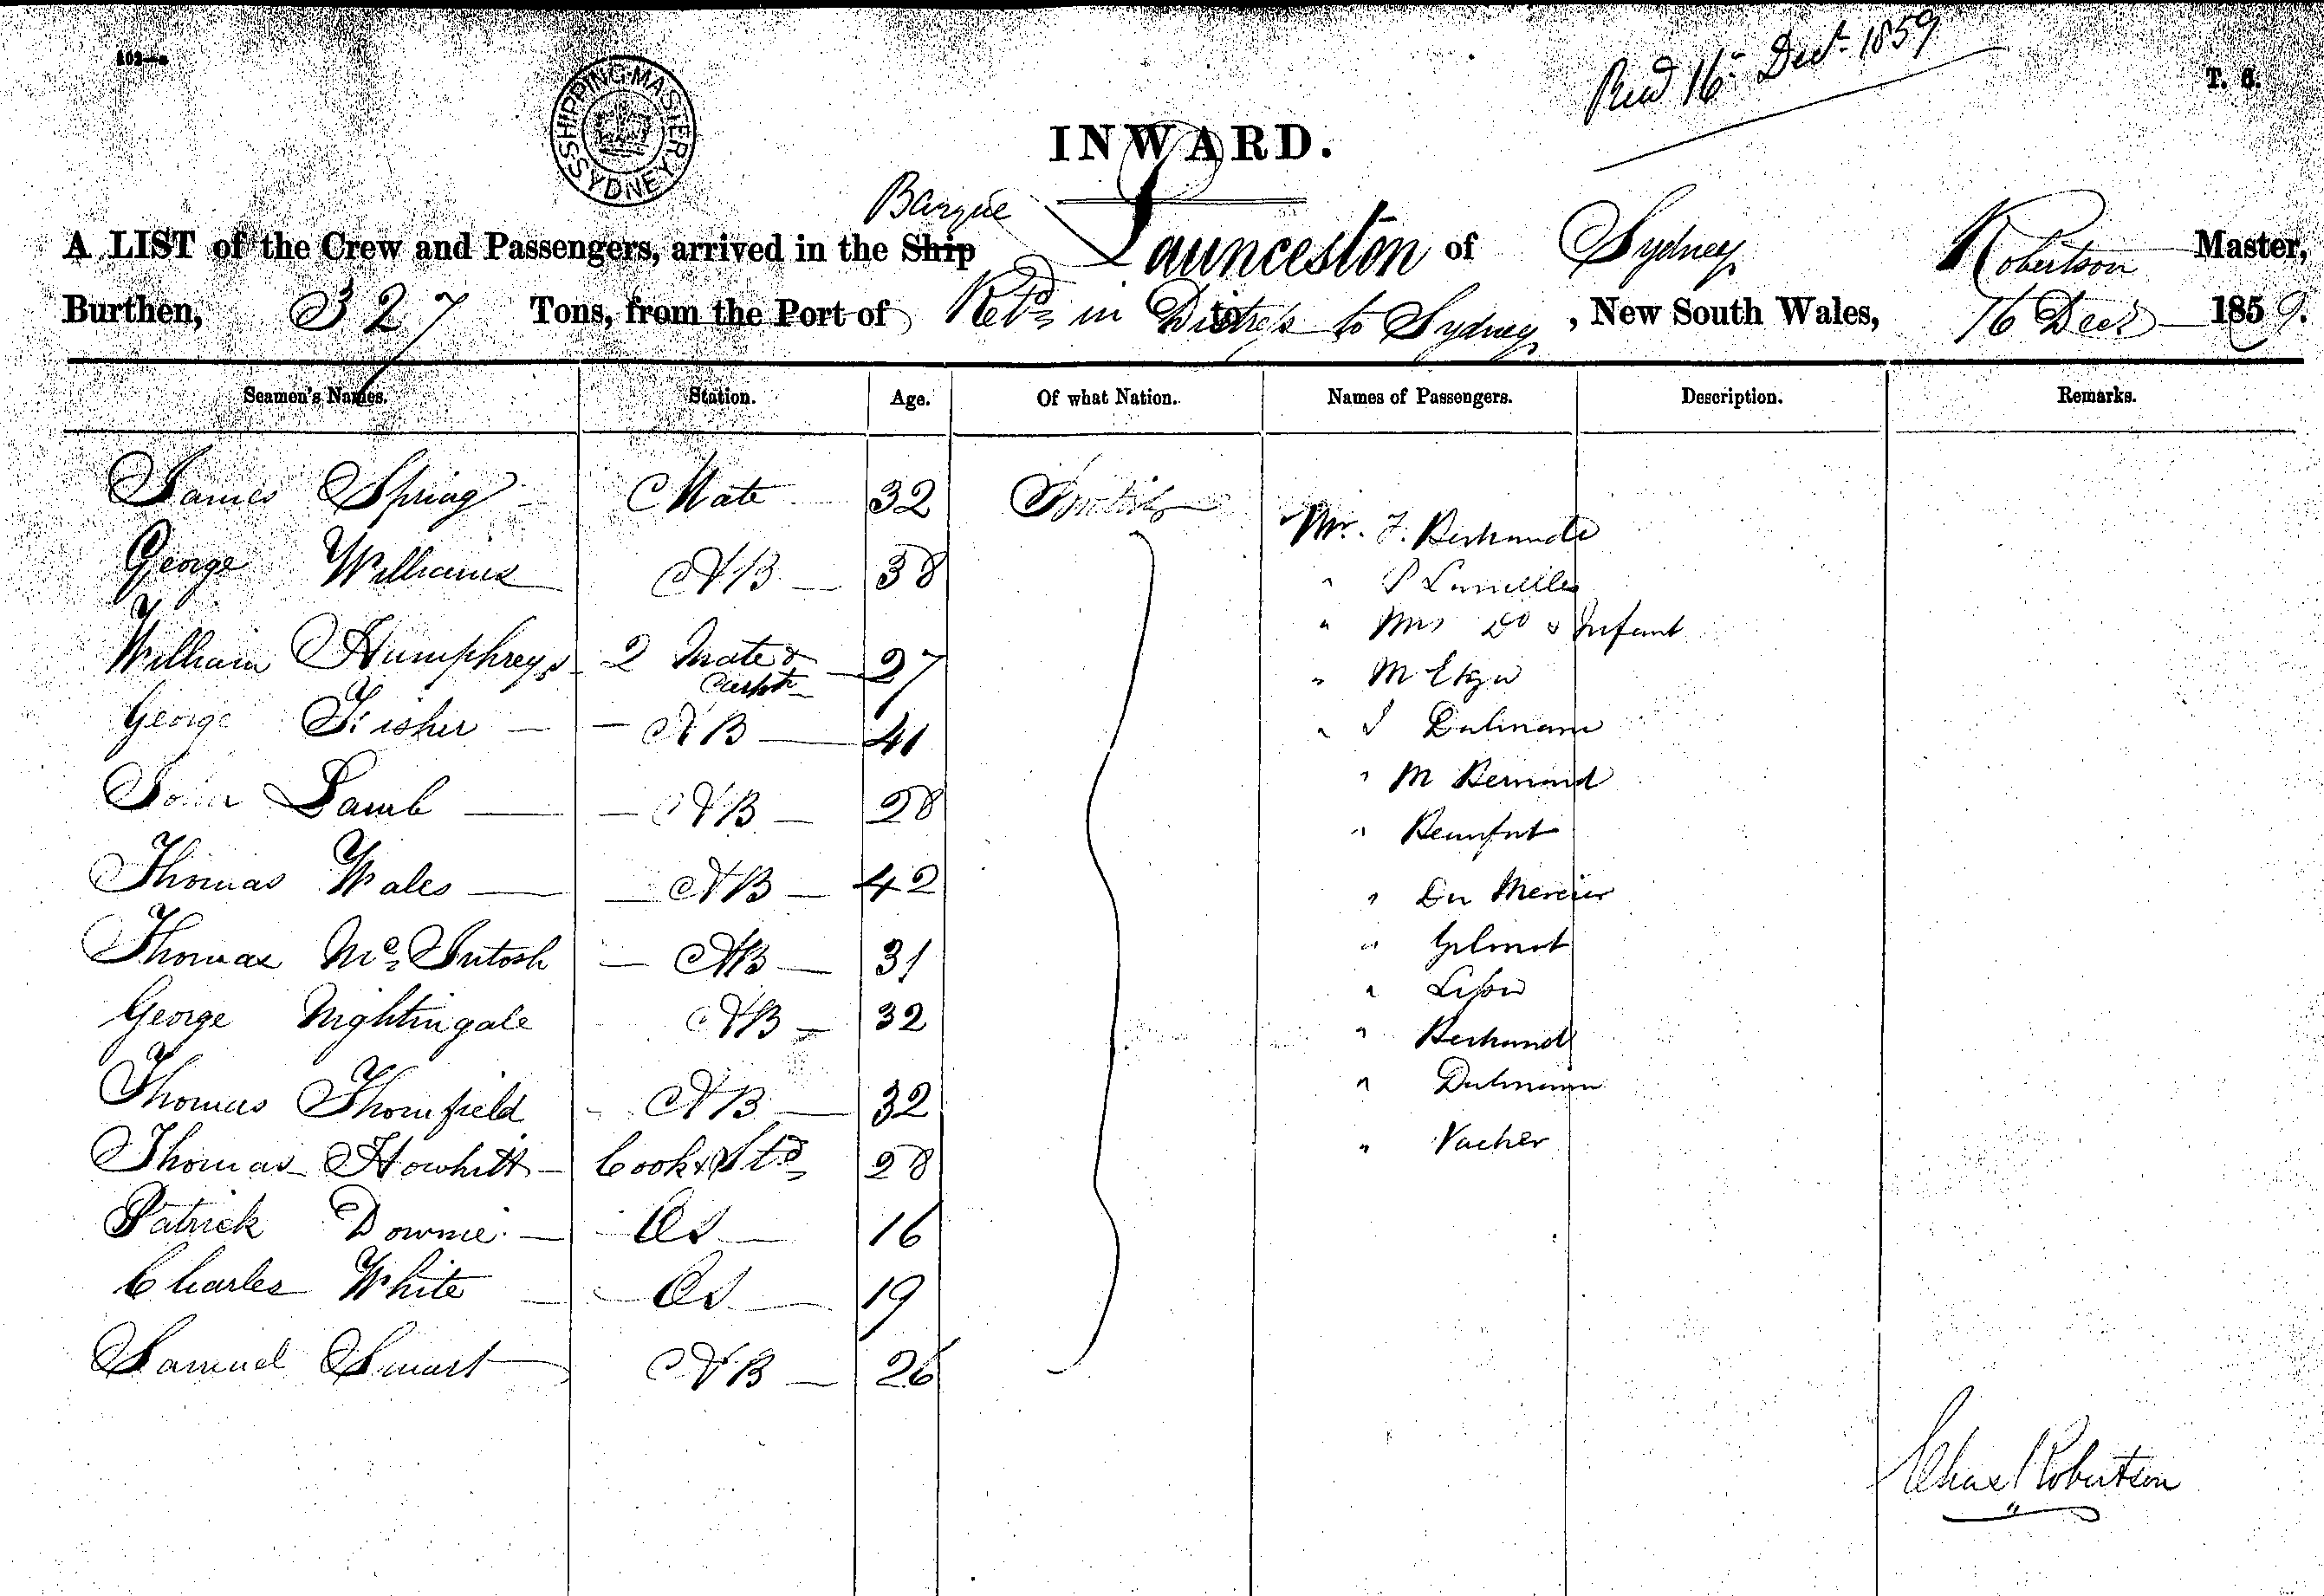 102—a
SHIPPING MASTER SYDNEY
Recd 16th Decr 1859
T. S.
INWARD.
Barque
A LIST of the Crew and Passengers, arrived in the Ship Launceston of Sydney Robertson Master,
Burthen, 327 Tons, from the Port of Retd in Distress to Sydney, New South Wales, 16 Decr 1859.
Seamen's Names. Station. Age. Of what Nation. Names of Passengers. Description. Remarks.
James Spring Mate 32 British
George Williams AB 38
William Humphreys 2 Mate & Carptr 27
George Fisher AB 41
John Lamb AB 28
Thomas Wales AB 42
Thomas McIntosh AB 31
George Nightingale AB 32
Thomas Thornfield AB 32
Thomas Howhitt Cook & Std 28
Patrick Downie OS 16
Charles White OS 19
Samuel Smart AB 26
Mr. F. Bertrande
" P
" Mrs Do & Infant
" M
" J Dulmann
" M Bernard
" Beaufort
" Du Mercier
" Gilmot
"
" Bertrand
" Dulmann
" Vacher
Chas Robertson